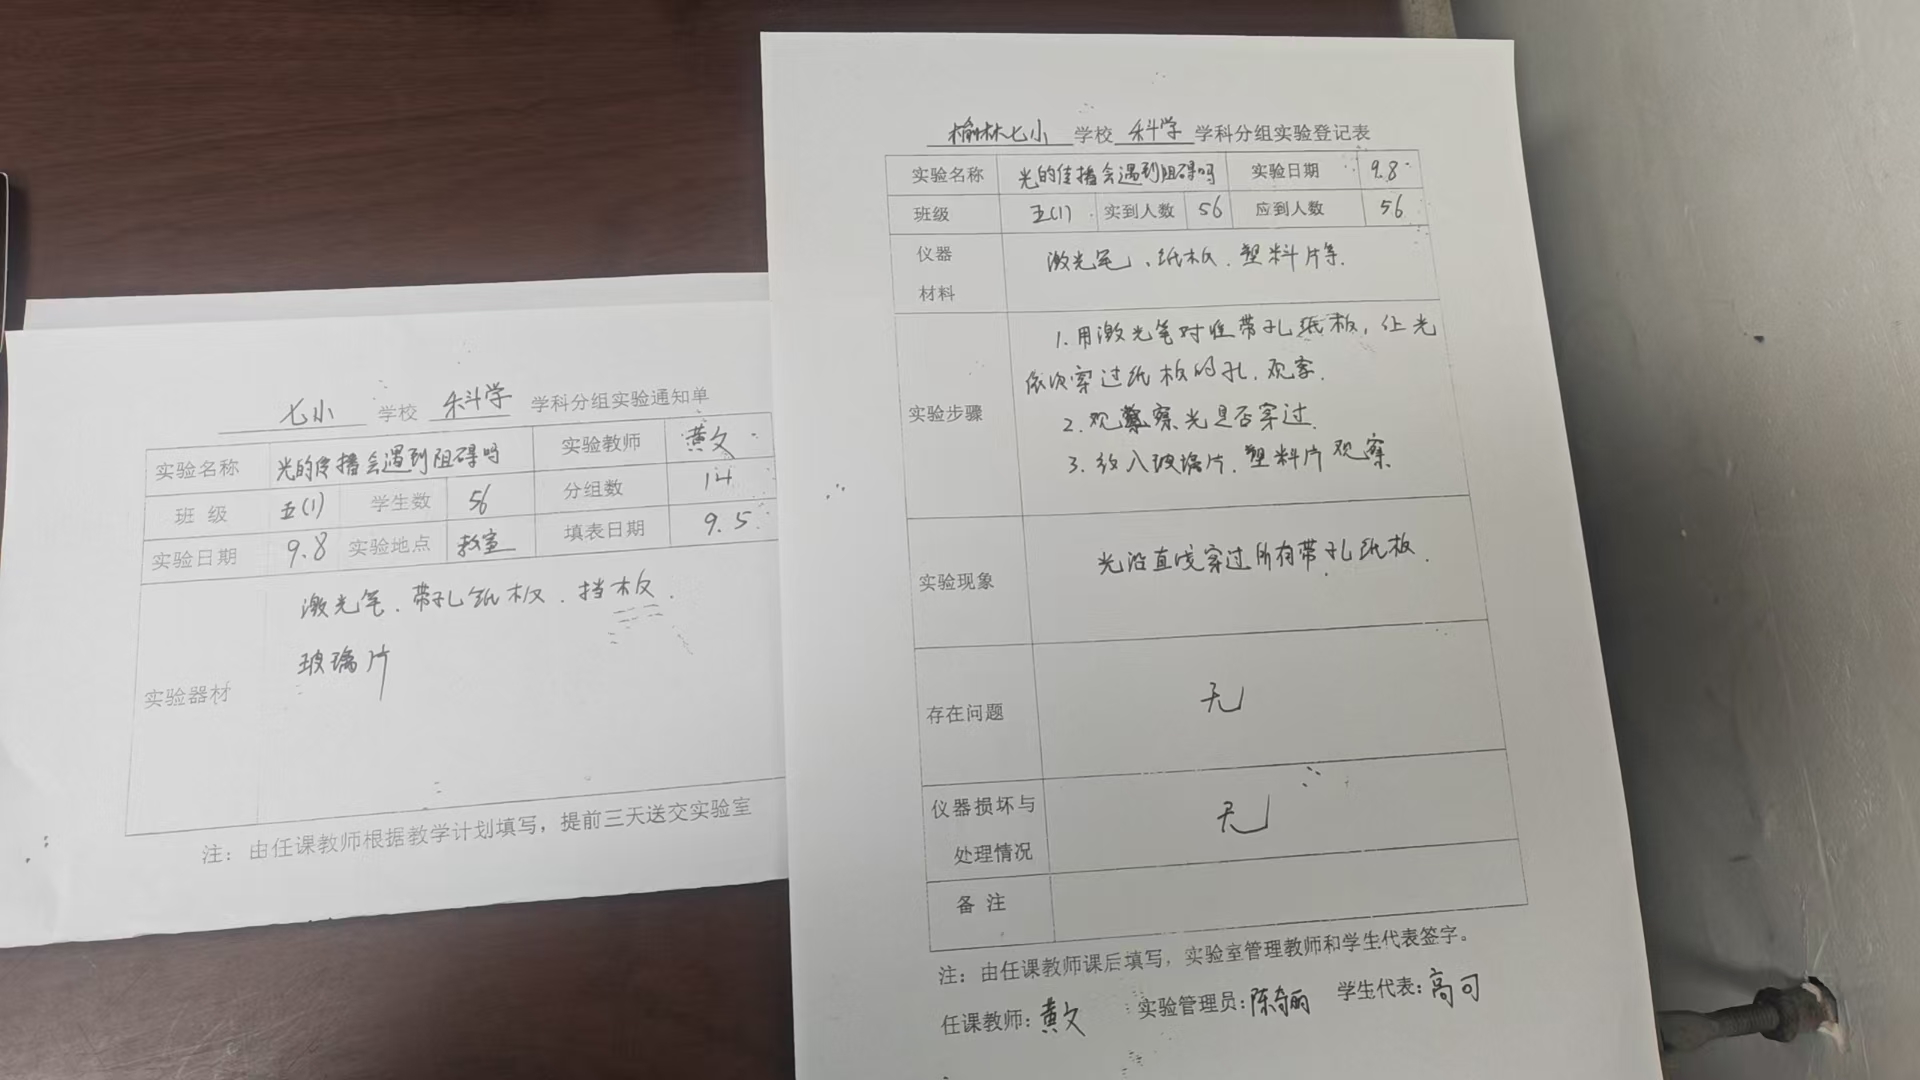 七小 学校 科学 学科分组实验通知单
实验名称 光的传播会遇到阻碍吗 实验教师 黄文
班 级 五(1) 学生数 56 分组数 14
实验日期 9.8 实验地点 教室 填表日期 9.5
实验器材 激光笔、带孔纸板、挡板、
玻璃片
注：由任课教师根据教学计划填写，提前三天送交实验室
榆林七小 学校 科学 学科分组实验登记表
实验名称 光的传播会遇到阻碍吗 实验日期 9.8
班级 五(1) 实到人数 56 应到人数 56
仪器 激光笔、纸板、塑料片等.
材料
实验步骤
1.用激光笔对准带孔纸板，让光
依次穿过纸板的孔.观察.
2.观察光是否穿过.
3.放入玻璃片.塑料片观察
实验现象 光沿直线穿过所有带孔纸板.
存在问题 无
仪器损坏与 无
处理情况
备 注
注：由任课教师课后填写，实验室管理教师和学生代表签字。
任课教师：黄文 实验管理员：陈 学生代表：高可